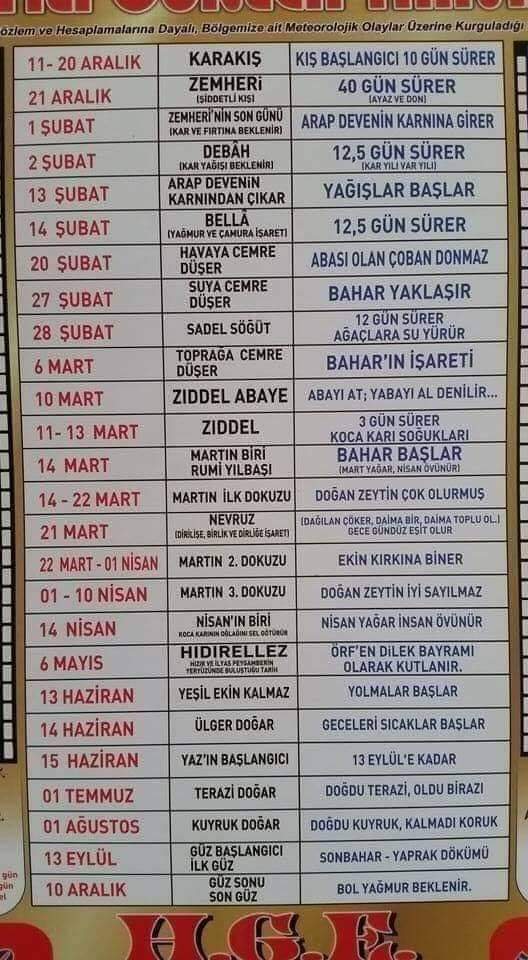 özlem ve Hesaplamalarına Dayalı, Bölgemize ait Meteorolojik Olaylar Üzerine Kurguladığı
11- 20 ARALIK KARAKIŞ KIŞ BAŞLANGICI 10 GÜN SÜRER
21 ARALIK ZEMHERİ 40 GÜN SÜRER
(ŞİDDETLİ KIŞ) (AYAZ VE DON)
1 ŞUBAT ZEMHERİ'NİN SON GÜNÜ ARAP DEVENİN KARNINA GİRER
(KAR VE FIRTINA BEKLENİR)
2 ŞUBAT DEBÂH 12,5 GÜN SÜRER
(KAR YAĞIŞI BEKLENİR) (KAR YILI VAR YILI)
13 ŞUBAT ARAP DEVENİN YAĞIŞLAR BAŞLAR
KARNINDAN ÇIKAR
14 ŞUBAT BELLÂ 12,5 GÜN SÜRER
(YAĞMUR VE ÇAMURA İŞARET)
20 ŞUBAT HAVAYA CEMRE ABASI OLAN ÇOBAN DONMAZ
DÜŞER
27 ŞUBAT SUYA CEMRE BAHAR YAKLAŞIR
DÜŞER
28 ŞUBAT SADEL SÖĞÜT 12 GÜN SÜRER
AĞAÇLARA SU YÜRÜR
6 MART TOPRAĞA CEMRE BAHAR'IN İŞARETİ
DÜŞER
10 MART ZIDDEL ABAYE ABAYI AT; YABAYI AL DENİLİR...
11- 13 MART ZIDDEL 3 GÜN SÜRER
KOCA KARI SOĞUKLARI
14 MART MARTIN BİRİ BAHAR BAŞLAR
RUMİ YILBAŞI (MART YAĞAR, NİSAN ÖVÜNÜR)
14 - 22 MART MARTIN İLK DOKUZU DOĞAN ZEYTİN ÇOK OLURMUŞ
21 MART NEVRUZ (DAĞILAN ÇÖKER, DAİMA BİR, DAİMA TOPLU OL.)
(DİRİLİŞE, BİRLİK VE DİRLİĞE İŞARET) GECE GÜNDÜZ EŞİT OLUR
22 MART - 01 NİSAN MARTIN 2. DOKUZU EKİN KIRKINA BİNER
01 - 10 NİSAN MARTIN 3. DOKUZU DOĞAN ZEYTİN İYİ SAYILMAZ
14 NİSAN NİSAN'IN BİRİ NİSAN YAĞAR İNSAN ÖVÜNÜR
KOCA KARININ OĞLAĞINI SEL GÖTÜRÜR
6 MAYIS HIDIRELLEZ ÖRF'EN DİLEK BAYRAMI
HIZIR VE İLYAS PEYGAMBERİN OLARAK KUTLANIR.
YERYÜZÜNDE BULUŞTUĞU TARİH
13 HAZİRAN YEŞİL EKİN KALMAZ YOLMALAR BAŞLAR
14 HAZİRAN ÜLGER DOĞAR GECELERİ SICAKLAR BAŞLAR
15 HAZİRAN YAZ'IN BAŞLANGICI 13 EYLÜL'E KADAR
01 TEMMUZ TERAZİ DOĞAR DOĞDU TERAZİ, OLDU BİRAZI
01 AĞUSTOS KUYRUK DOĞAR DOĞDU KUYRUK, KALMADI KORUK
13 EYLÜL GÜZ BAŞLANGICI SONBAHAR - YAPRAK DÖKÜMÜ
İLK GÜZ
10 ARALIK GÜZ SONU BOL YAĞMUR BEKLENİR.
SON GÜZ
gün
gün
el
H.G.E.